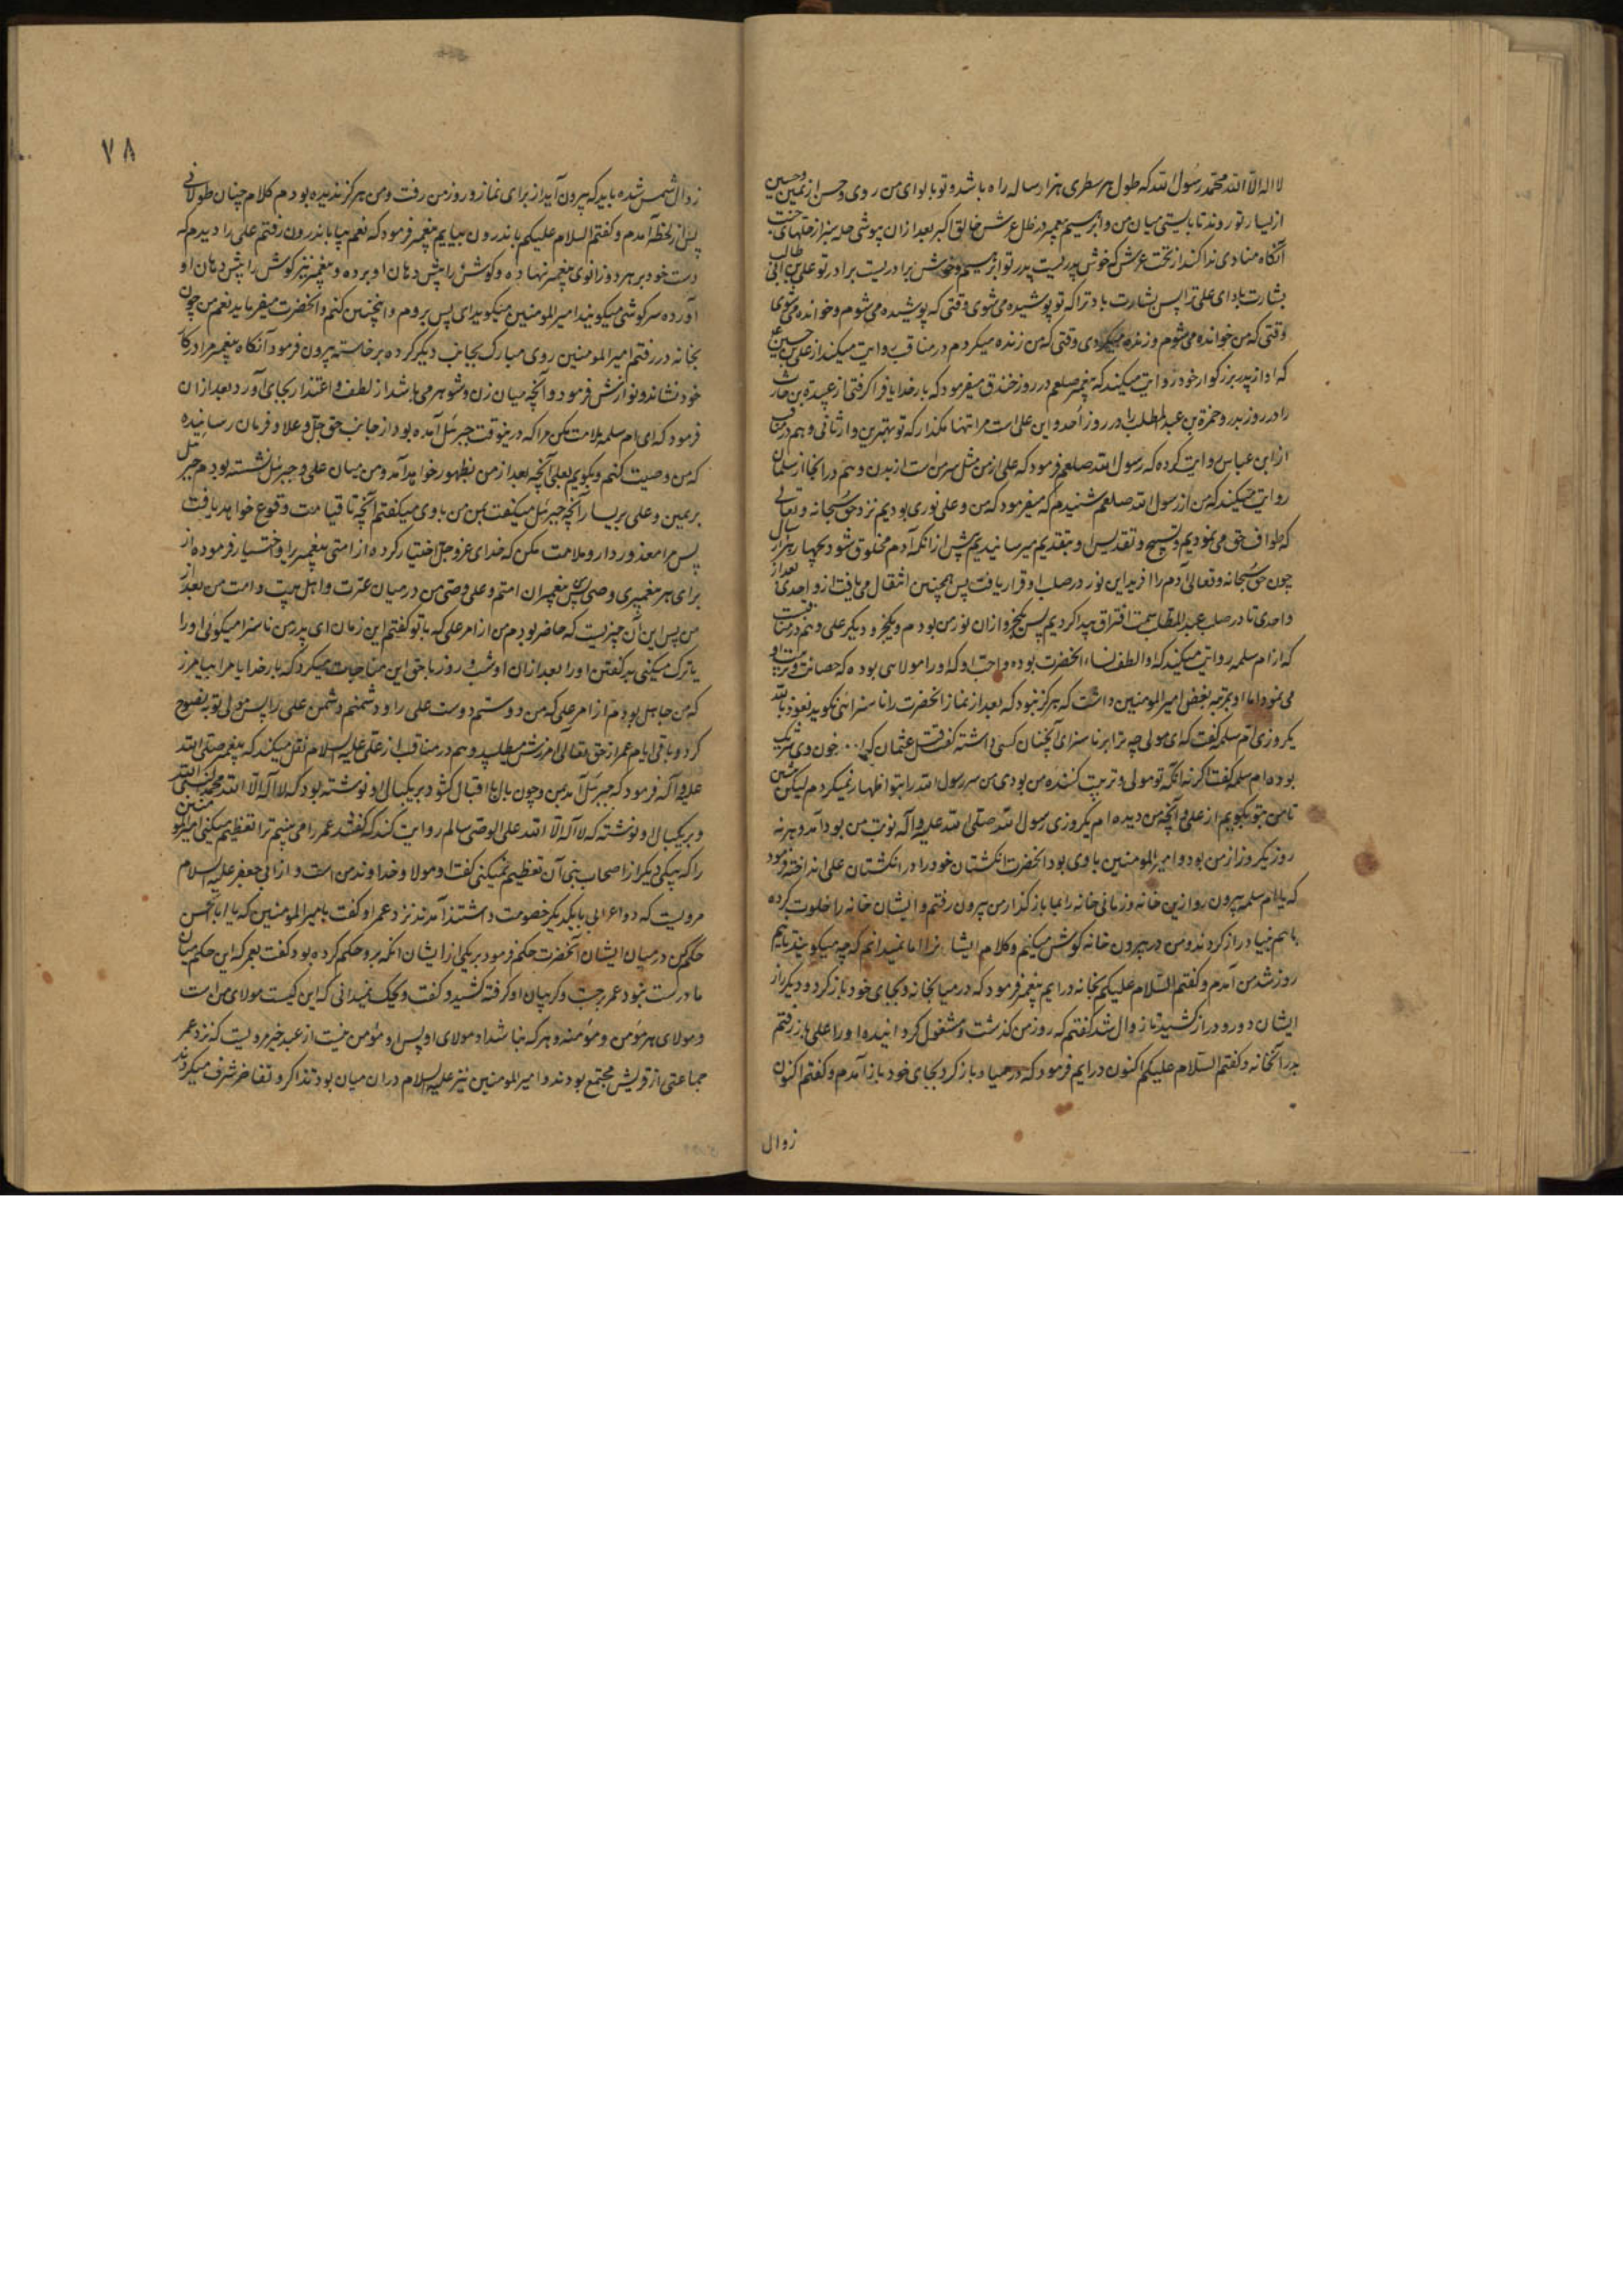 لا اله الا الله محمد رسول الله که طول هر سطری هزار ساله راه باشد و تو با لوای من روی و حسن از یمین و حسین
از یسار تو روند تا بایستی میان من و ابراهیم پیغمبر در ظل عرش خالق اکبر بعد ازان پوشی حله سبز از حلهای جنت
آنگاه منادی ندا کند از تحت عرش که خوش پدریست پدر تو ابراهیم و خوش برادریست برادر تو علی بن ابی طالب
بشارت باد ای علی ترا پس بشارت باد ترا که تو پوشیده می‌شوی وقتی که پوشیده می‌شوم و خوانده می‌شوی
وقتی که من خوانده می‌شوم و زنده میکردی وقتی که من زنده میکردم در مناقب روایت میکند از علی بن حسین ع
که او از پدر بزرکوار خود روایت میکند که پیغمبر صلعم در روز خندق میفرمود که بار خدایا فرا کرفتی از عبیدة بن حارث
را در روز بدر و حمزة بن عبد المطلب را در روز احد و این علی است مرا تنها مکذار که تو بهترین وارثانی و هم در مناقب
از ابن عباس روایت کرده که رسول الله صلعم فرمود که علی از من مثل سر من است از بدن و هم در انجا از سلمان
روایت میکند که من از رسول الله صلعم شنیدم که میفرمود که من و علی نوری بودیم نزد حق سبحانه و تعالی
که طواف حق می نمودیم و تسبیح و تقدیس او بتقدیم میرسانیدیم پیش از انکه آدم مخلوق شود بچهار هزار سال
چون حق سبحانه و تعالی آدم را افرید این نور در صلب او قرار یافت پس همچنین انتقال می یافت از واحدی بعد از
واحدی تا در صلب عبد المطلب سمت افتراق پیدا کردیم پس یکجزو ازان نور من بودم و یکجزو دیکر علی و هم در مناقبت
که از ام سلمه روایت میکند که او الطف نساء انحضرت بوده و احب او که او را مولایی بوده که حضانت و تربیت او
می نمود اما او بمرتبه بغض امیر المومنین داشت که هرکز نبود که بعد از نماز انحضرت را ناسزائی نکوید نعوذ بالله
یکروزی ام سلمه کفت که ای مولی چه ترا بر ناسزای آنچنان کسی داشته کفت قتل عثمان که خون وی شریک
بوده ام سلمه کفت اکر نه انکه تو مولی و تربیت کننده من بودی من سر رسول الله را بتو اظهار نمیکردم لیکن بنشین
تا من بتو بکویم از علی و آنچه من دیده ام یکروزی رسول الله صلی الله علیه و آله نوبت من بود آمد و هر نه
روز یکروز از من بود و امیر المومنین با وی بود انحضرت انکشتان خود را در انکشتان علی انداخته فرمود
که یا ام سلمه بیرون رو ازین خانه و زمانی خانه را بما باز کذار من بیرون رفتم و ایشان خانه را خلوت کرده
باهم بنیاد راز کردند و من در بیرون خانه کوش میکنم و کلام ایشان را اما نمیدانم که چه میکویند تا نیم
روز شد من آمدم و کفتم السلام علیکم بخانه در ایم پیغمبر فرمود که در میا بخانه و بجای خود باز کرد و دیکر راز
ایشان دور و دراز کشید تا زوال شد کفتم که روز من کذشت و مشغول کردانیده او را علی باز رفتم
بدر آنخانه و کفتم السلام علیکم اکنون در ایم فرمود که در میا و باز کرد بجای خود باز آمدم و کفتم اکنون
زوال
۷۸
زوال شمس شده باید که بیرون آید از برای نماز و روز من رفت و من هرکز ندیده بودم کلام چنان طولانی
پس از لحظه آمدم و کفتم السلام علیکم باندرون بیایم پیغمبر فرمود که نعم بیا باندرون رفتم علی را دیدم که
دست خود بر هر دو زانوی پیغمبر نهاده و کوشش را پیش دهان او برده و پیغمبر نیز کوش را پیش دهان او
آورده سرکوشی میکویند امیر المومنین میکوید ای پس بروم و اینچنین کنم و انحضرت میفرماید نعم من چون
بخانه در رفتم امیر المومنین روی مبارک بجانب دیکر کرده برخاسته بیرون فرمود آنکاه پیغمبر مرا در کنار
خود نشاند و نوازش فرمود و آنچه میان زن و شوهر می باشد از لطف و اعتذار بجای آورد بعد ازان
فرمود که ای ام سلمه ملامت مکن مرا که درینوقت جبرئیل آمده بود از جانب حق جل و علا و فرمان رسانیده
که من وصیت کنم و بکویم بعلی آنچه بعد از من بظهور خواهد آمد و من میان علی و جبرئیل نشسته بودم جبرئیل
بر یمین و علی بر یسار آنچه جبرئیل میکفت بمن من با وی میکفتم آنچه تا قیامت وقوع خواهد یافت
پس مرا معذور دار و ملامت مکن که خدای عز و جل اختیار کرده از امتی پیغمبر را و اختیار فرموده از
برای هر پیغمبری وصی پس من پیغمبر این امتم و علی وصی من در میان عترت و اهل بیت و امت من بعد از
من پس این آن چیزیست که حاضر بودم من از امر علی که با تو کفتم این زمان ای پدر من ناسزا میکوئی او را
یا ترک میکنی بد کفتن او را بعد ازان او شب و روز با حق این مناجات میکرد که بار خدایا مرا بیامرز
که من جاهل بودم از امر علی که من دوستم دوست علی را و دشمنم دشمن علی را پس مولی توبه نصوح
کرد و باقی ایام عمر از حق تعالی امرزش میطلبید و هم در مناقب از علی علیه السلام نقل میکند که پیغمبر صلی الله
علیه و آله فرمود که جبرئیل آمد بمن و چون بال با اقبال کشود بر یکبال او نوشته بود که لا اله الا الله محمد النبی
و بر یکبال او نوشته که لا اله الا الله علی الوصی سالم روایت کند که کفتند عمر را می بینیم ترا تعظیم میکنی امیر المومنین
را که بیکی دیکر از اصحاب نبی آن تعظیم نمیکنی کفت او مولا و خداوند من است و از ابی جعفر علیه السلام
مرویست که دو اعرابی با یکدیکر خصومت داشتند آمدند نزد عمر او کفت بامیر المومنین که یا ابا الحسن
حکم کن در میان ایشان آنحضرت حکم فرمود بر یکی از ایشان انکه برو حکم کرده بود کفت بعمر که این حکم میان
ما درست نبود عمر بر جست و کریبان او کرفته کشید و کفت ویحک نمیدانی که این کیست مولای من است
و مولای هر مؤمن و مؤمنه و هر که نباشد او مولای او پس او مؤمن نیست از عبد خیر مرویست که نزد عمر
جماعتی از قریش مجتمع بودند و امیر المومنین نیز علیه السلام دران میان بود تذاکر و تفاخر شرف میکردند